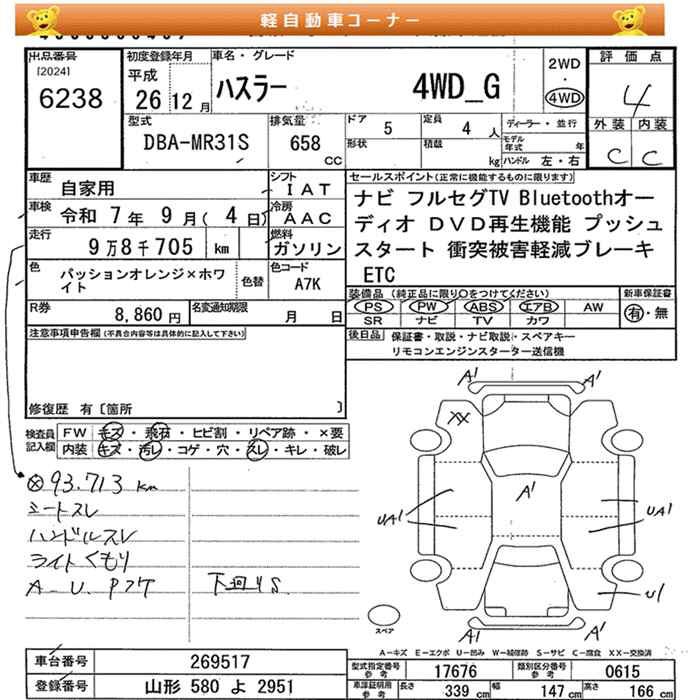 軽自動車コーナー
出品番号
[2024]
6238
初度登録年月
平成
26 12 月
車名・グレード
ハスラー 4WD_G
2WD
・
4WD
評価点
4
外装 内装
C C
型式
DBA-MR31S
排気量
658
CC
ドア 5
定員 4 人
形状
積載 kg
ディーラー・並行
モデル年式 年
ハンドル 左・右
車歴 自家用
シフト IAT
車検 令和 7 年 9 月( 4 日)
冷房 AAC
走行 9 万 8 千 705 km
燃料 ガソリン
色 パッションオレンジ×ホワイト
色替
色コード A7K
R券 8,860 円
名変通知期限 月 日
セールスポイント(正常に機能するものに限ります)
ナビ フルセグTV Bluetoothオー
ディオ DVD再生機能 プッシュ
スタート 衝突被害軽減ブレーキ
ETC
装備品 (純正品に限り○をつけてください)
PS PW ABS エアB AW
SR ナビ TV カワ
新車保証書
有・無
後日品 保証書・取説・ナビ取説・スペアキー
リモコンエンジンスターター送信機
注意事項申告欄(不具合内容等は具体的に記入して下さい)
修復歴 有〔箇所 〕
検査員記入欄
FW キズ・飛石・ヒビ割・リペア跡・×要
内装 キズ・汚レ・コゲ・穴・スレ・キレ・破レ
Ⓧ93.713 km
シートスレ
ハンドルスレ
ライトくもり
A-U. Pアケ
下回りS
A1 A1
XX
A1
UA1 UA1
U1
A1 A1
スペア
A―キズ E―エクボ U―凹み W―補修跡 S―サビ C―腐食 XX―交換済
車台番号 269517
登録番号 山形 580 よ 2951
型式指定番号 参考 17676
類別区分番号 参考 0615
車庫証明用 参考 長さ 339 cm 幅 147 cm 高さ 166 cm